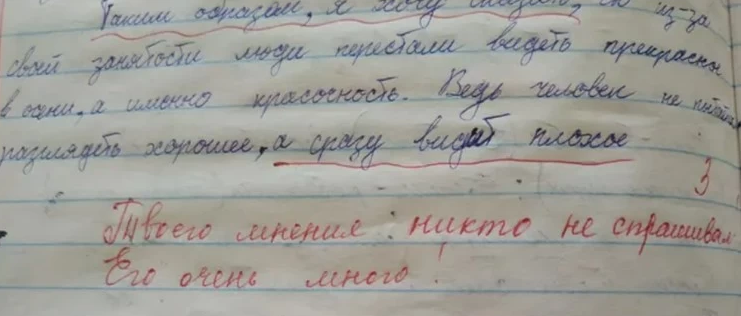 Таким образом, я хочу сказать, из-за
своей занятости люди перестали видеть прекрасное
в осени, а именно красочность. Ведь человек не пытается
разглядеть хорошее, а сразу видит плохое
3
Твоего мнения никто не спрашивал
Его очень много!